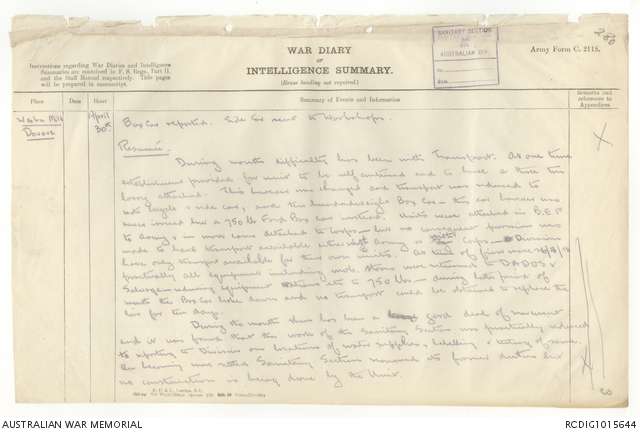 SANITARY SECTION
AUSTRALIAN DIV.
No.
DATE
280
WAR DIARY
or
INTELLIGENCE SUMMARY.
(Erase heading not required.)
Army Form C. 2118.
Instructions regarding War Diaries and Intelligence
Summaries are contained in F. S. Regs., Part II.
and the Staff Manual respectively. Title pages
will be prepared in manuscript.
Place
Date
Hour
Summary of Events and Information
Remarks and
references to
Appendices
Mill
Doours
April
30th
Box Car reported. Side Car sent to Workshops.
Resumé.
During month difficulty has been with Transport. At one time
establishment provided for unit to be self contained and to have a three ton
lorry attached. This however was changed and transport was reduced to
cycle & side car, and ten hundredweight Box Car - this car however was
never issued but a 750 lb Ford Box Car instead. Units were attached in B.E.F.
to Army & in most cases detached to Corps - but no consequent provision was
made to have transport available either Army or Corps - Divisions
have only transport available for their own units. At time of
practically all equipment including mob. stores were returned to DADOS &
Salvage reducing equipment to 750 lbs - during later period of
month the Box Car broke down and no transport could be obtained to replace the
car for ten days.
During the month there has been a good deal of movement
and it was found that the work of the Sanitary Section was practically reduced
to reporting to Division on locations of water supplies, labelling & testing of same.
On becoming more settled Sanitary Section resumed its former duties but
no construction is being done by the Unit.
AUSTRALIAN WAR MEMORIAL
RCDIG1015644